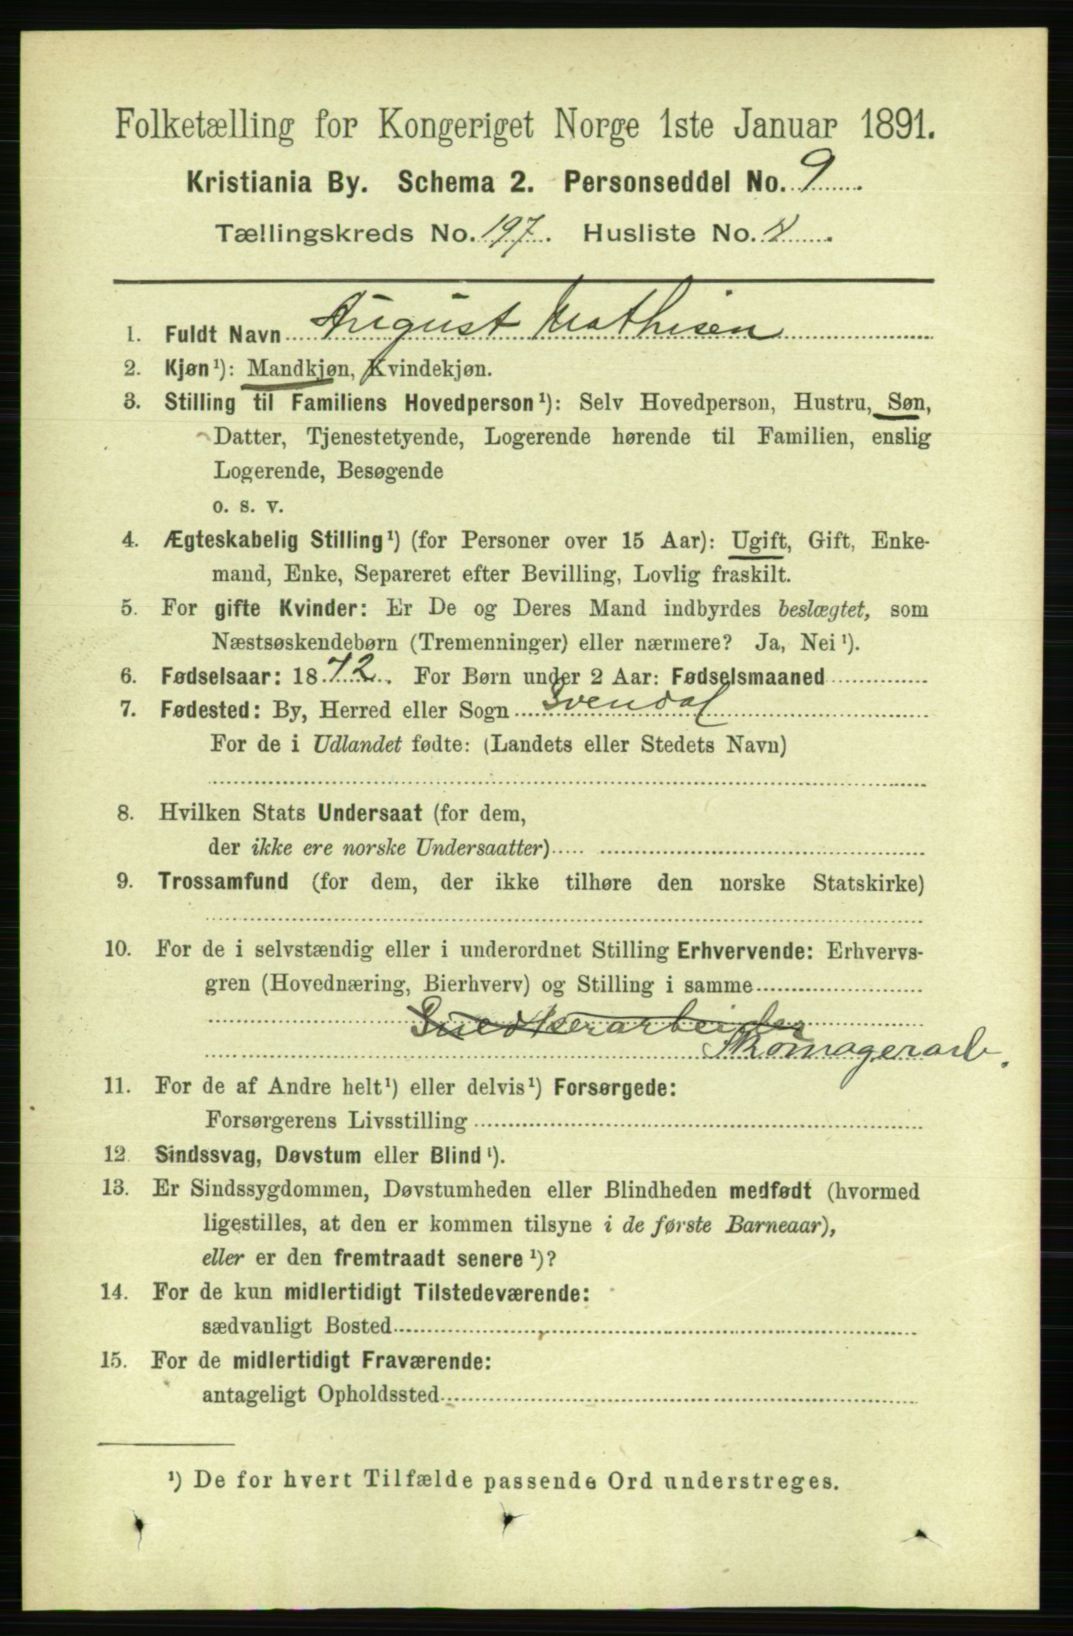 Folketælling for Kongeriget Norge 1ste Januar 1891.
Kristiania By. Schema 2. Personseddel No. 9.
Tællingskreds No. 197. Husliste No. 8.
1. Fuldt Navn August Mathisen
2. Kjøn¹): Mandkjøn, Kvindekjøn.
3. Stilling til Familiens Hovedperson¹): Selv Hovedperson, Hustru, Søn,
Datter, Tjenestetyende, Logerende hørende til Familien, enslig
Logerende, Besøgende
o. s. v.
4. Ægteskabelig Stilling¹) (for Personer over 15 Aar): Ugift, Gift, Enke-
mand, Enke, Separeret efter Bevilling, Lovlig fraskilt.
5. For gifte Kvinder: Er De og Deres Mand indbyrdes beslægtet, som
Næstsøskendebørn (Tremenninger) eller nærmere? Ja, Nei¹).
6. Fødselsaar: 1872. For Børn under 2 Aar: Fødselsmaaned
7. Fødested: By, Herred eller Sogn Svendal
For de i Udlandet fødte: (Landets eller Stedets Navn)
8. Hvilken Stats Undersaat (for dem,
der ikke ere norske Undersaatter)
9. Trossamfund (for dem, der ikke tilhøre den norske Statskirke)
10. For de i selvstændig eller i underordnet Stilling Erhvervende: Erhvervs-
gren (Hovednæring, Bierhverv) og Stilling i samme
Snedkerarbeider
Skomagerarb.
11. For de af Andre helt¹) eller delvis¹) Forsørgede:
Forsørgerens Livsstilling
12 Sindssvag, Døvstum eller Blind¹).
13. Er Sindssygdommen, Døvstumheden eller Blindheden medfødt (hvormed
ligestilles, at den er kommen tilsyne i de første Barneaar),
eller er den fremtraadt senere¹)?
14. For de kun midlertidigt Tilstedeværende:
sædvanligt Bosted
15. For de midlertidigt Fraværende:
antageligt Opholdssted
¹) De for hvert Tilfælde passende Ord understreges.